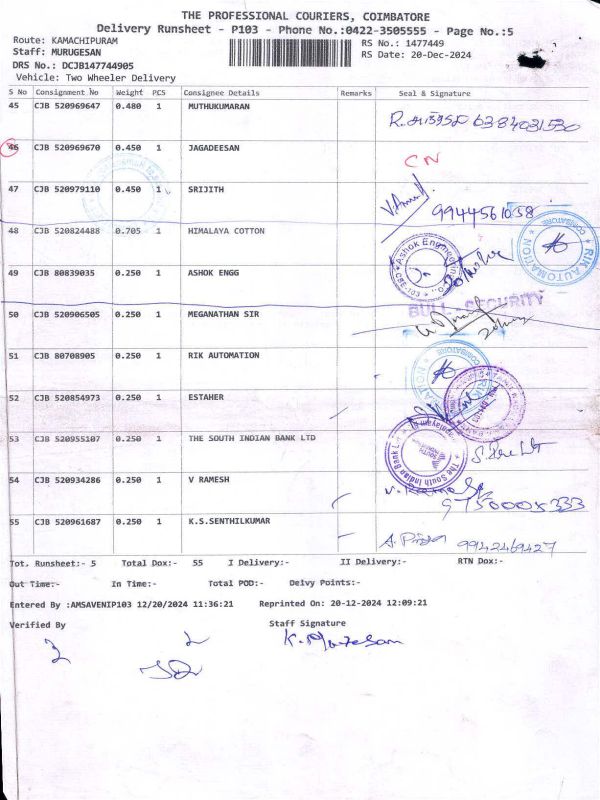 THE PROFESSIONAL COURIERS, COIMBATORE
Delivery Runsheet - P103 - Phone No.:0422-3505555 - Page No.:5
Route: KAMACHIPURAM RS No.: 1477449
Staff: MURUGESAN RS Date: 20-Dec-2024
DRS No.: DCJB147744905
Vehicle: Two Wheeler Delivery
S No Consignment No Weight PCS Consignee Details Remarks Seal & Signature
45 CJB 520969647 0.480 1 MUTHUKUMARAN 6384031530
46 CJB 520969670 0.450 1 JAGADEESAN CN
47 CJB 520979110 0.450 1 SRIJITH 9944561058
48 CJB 520824488 0.705 1 HIMALAYA COTTON
49 CJB 80839035 0.250 1 ASHOK ENGG
50 CJB 520906505 0.250 1 MEGANATHAN SIR
51 CJB 80708905 0.250 1 RIK AUTOMATION
52 CJB 520854973 0.250 1 ESTAHER
53 CJB 520955107 0.250 1 THE SOUTH INDIAN BANK LTD
54 CJB 520934286 0.250 1 V RAMESH
55 CJB 520961687 0.250 1 K.S.SENTHILKUMAR 9942469427
Tot. Runsheet:- 5 Total Dox:- 55 I Delivery:- II Delivery:- RTN Dox:-
Out Time:- In Time:- Total POD:- Delvy Points:-
Entered By :AMSAVENIP103 12/20/2024 11:36:21 Reprinted On: 20-12-2024 12:09:21
Verified By Staff Signature